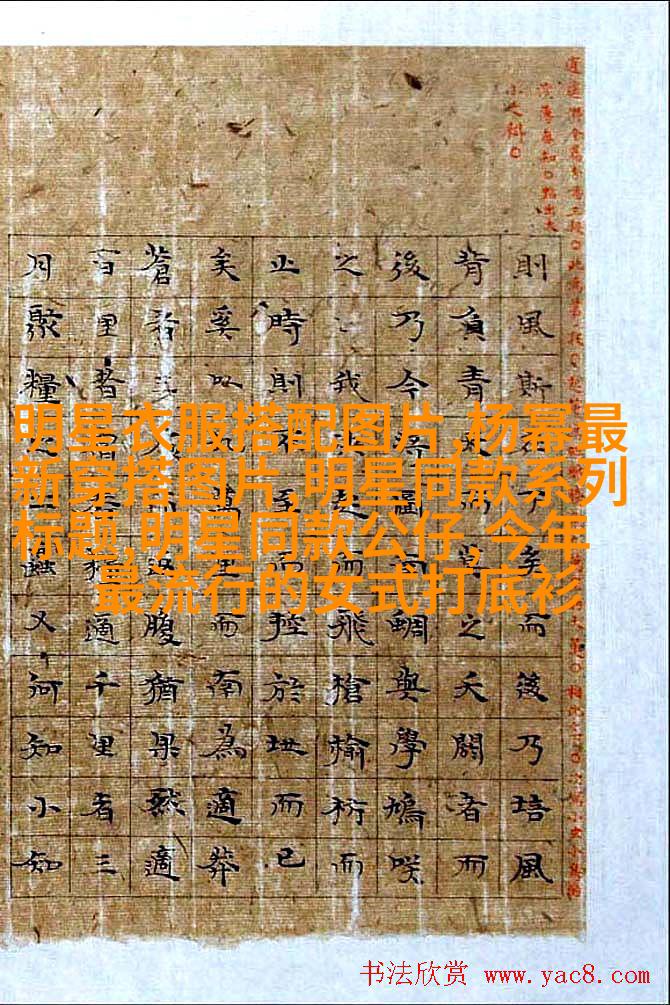 則風斯在下矣而後乃培風
背負青天而莫之夭閼者而
後乃今將圖南蜩與學鳩咲
之我決起而飛搶榆枋而
止時則不至而控於地而已
矣奚以九萬里而南為適莽
蒼者三而返腹猶果然適
百里者宿適千里者三
月聚糧之二蟲又何知小知
明星衣服搭配图片,杨幂最
新穿搭图片,明星同款系列
标题,明星同款公仔,今年
最流行的女式打底衫
书法欣赏 www.yac8.com